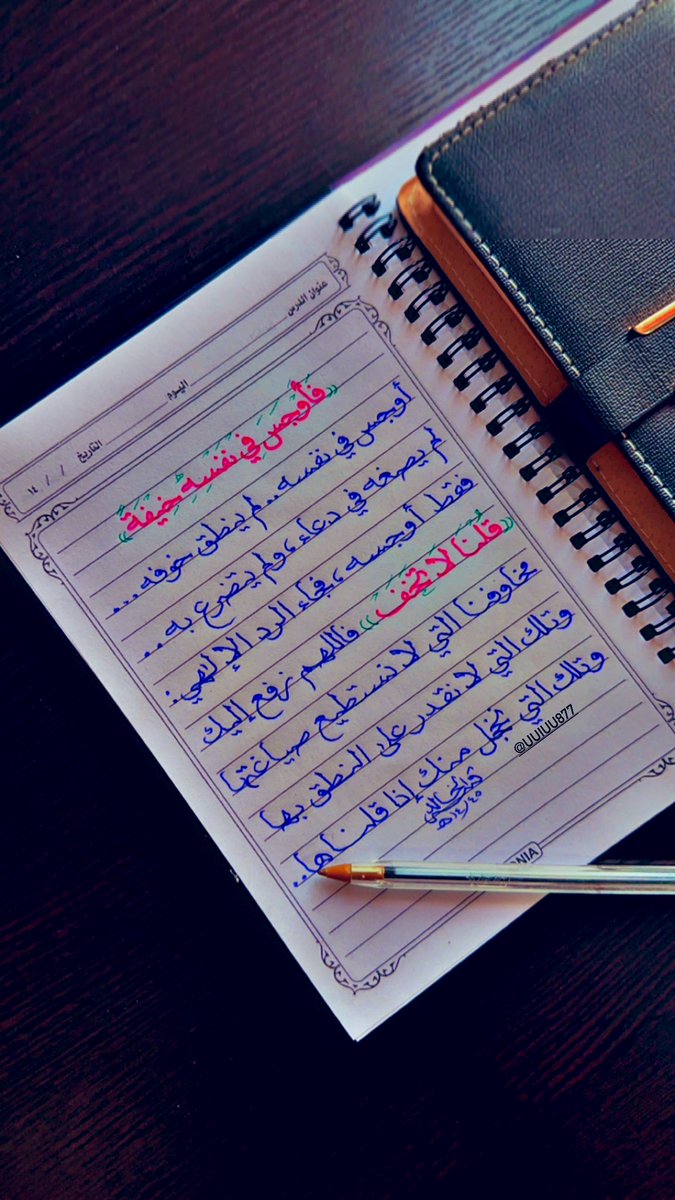 عنوان الدرس
اليوم
التاريخ / / ١٤
«فَأَوْجَسَ فِي نَفْسِهِ خِيفَةً»
أوجس في نفسه.. لم ينطق خوفه...
لم يصغه في دعاء، ولم يتضرع به..
فقط أوجسه، فجاء الرد الإلهي:
«قُلْنَا لَا تَخَفْ» فاللهم نرفع إليك
مخاوفنا التي لا نستطيع صياغتها
وتلك التي لا نقدر على النطق بها
وتلك التي نخجل منك إذا قلناها..
@UUIUU877
١٤٤٥هـ
NIA